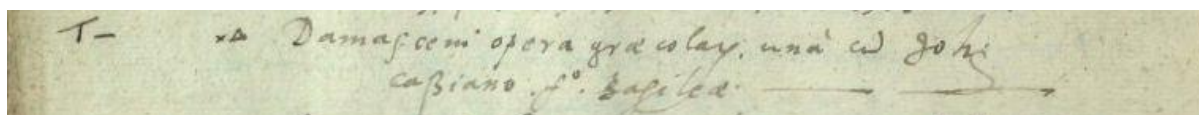 T- xΔ Damasceni opera græcolat. unà cū Johē
caßiano. f°. Basileæ.